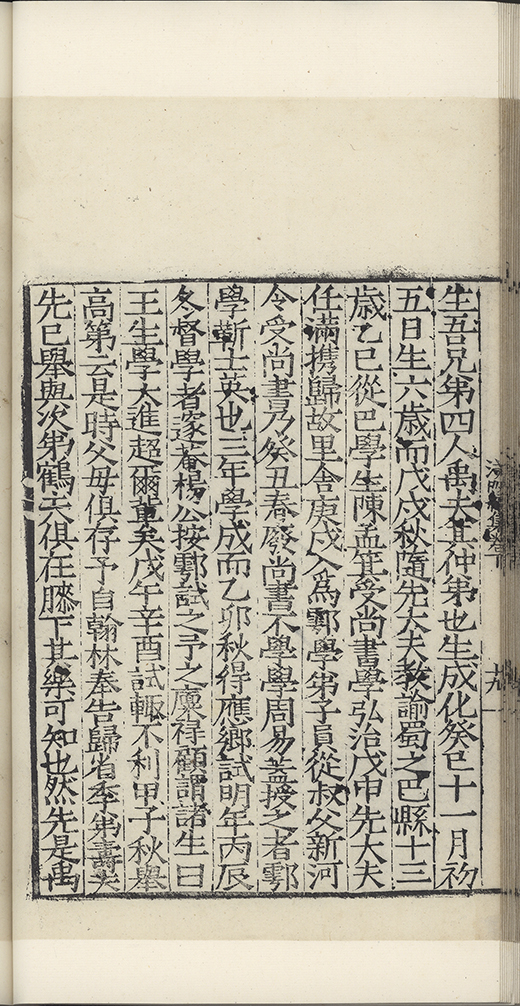 生吾兄第四人禹夫其仲弟也生成化癸巳十一月初
五日生六歲而戊戌秋隨先大夫教諭蜀之巴縣十三
歲乙巳從巴學生陳孟箕受尚書學弘治戊申先大夫
任滿携歸故里舍庚戌入爲鄠學弟子員從叔父新河
令受尚書乃癸丑春廢尚書不學學周易蓋授之者鄠
學靳士英也三年學成而乙卯秋得應鄉試明年丙辰
冬督學者邃菴楊公按鄠試之予之廩祿顧謂諸生曰
王生學大進超爾輩矣戊午辛酉試輙不利甲子秋舉
高第云是時父毋俱存予自翰林奉告歸省季弟壽夫
先已舉與次弟鶴夫俱在膝下其樂可知也然先是禹